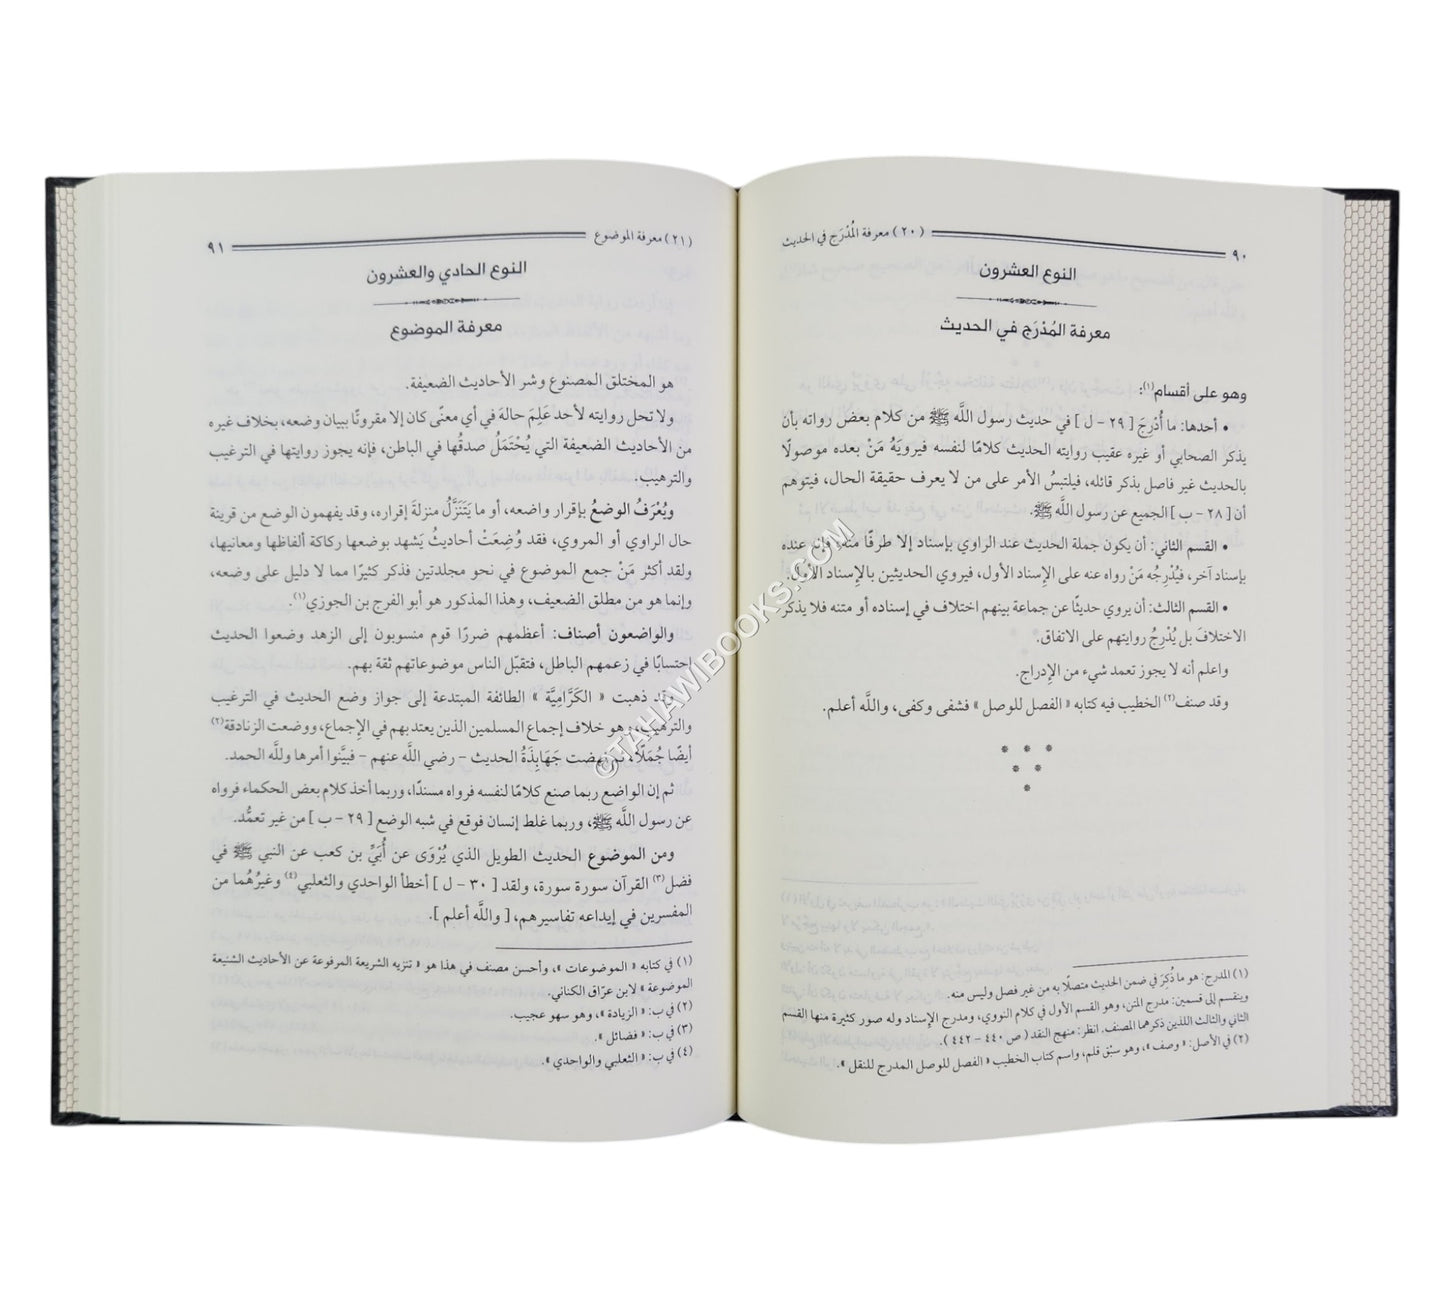 ٩٠ (٢٠) معرفة المُدْرَج في الحديث
النوع العشرون
معرفة المُدْرَج في الحديث
وهو على أقسام(١):
• أحدها: ما أُدْرِجَ [ ٢٩ - ل ] في حديث رسول اللَّه ﷺ من كلام بعض رواته بأن
يذكر الصحابي أو غيره عقيب روايته الحديث كلامًا لنفسه فيرويَهُ مَنْ بعده موصولًا
بالحديث غير فاصل بذكر قائله، فيلتبسُ الأمر على من لا يعرف حقيقة الحال، فيتوهم
أن [ ٢٨ - ب ] الجميع عن رسول اللَّه ﷺ.
• القسم الثاني: أن يكون جملة الحديث عند الراوي بإسناد إلا طرفًا منه، فإن عنده
بإسناد آخر، فيُدْرِجُه مَنْ رواه عنه على الإسناد الأول، فيروي الحديثين بالإسناد الأول.
• القسم الثالث: أن يروي حديثًا عن جماعة بينهم اختلاف في إسناده أو متنه فلا يذكر
الاختلافَ بل يُدْرِجُ روايتهم على الاتفاق.
واعلم أنه لا يجوز تعمد شيء من الإدراج.
وقد صنف(٢) الخطيب فيه كتابه « الفصل للوصل » فشفى وكفى، واللَّه أعلم.
(١) المدرج: هو ما ذُكِرَ في ضمن الحديث متصلًا به من غير فصل وليس منه.
وينقسم إلى قسمين: مدرج المتن، وهو القسم الأول في كلام النووي، ومدرج الإسناد وله صور كثيرة منها القسم
الثاني والثالث اللذين ذكرهما المصنف. انظر: منهج النقد ( ص ٤٤٠ - ٤٤٢ ).
(٢) في الأصل: « وصف »، وهو سبْق قلم، واسم كتاب الخطيب « الفصل للوصل المدرج للنقل ».
(٢١) معرفة الموضوع ٩١
النوع الحادي والعشرون
معرفة الموضوع
هو المختلق المصنوع وشر الأحاديث الضعيفة.
ولا تحل روايته لأحد عَلِمَ حالهَ في أي معنًى كان إلا مقرونًا ببيان وضعه، بخلاف غيره
من الأحاديث الضعيفة التي يُحْتَمَلُ صدقُها في الباطن، فإنه يجوز روايتها في الترغيب
والترهيب.
ويُعْرَفُ الوضعُ بإقرار واضعه، أو ما يَتَنَزَّلُ منزلة إقراره، وقد يفهمون الوضع من قرينة
حال الراوي أو المروي، فقد وُضِعَتْ أحاديثُ يَشهد بوضعها ركاكة ألفاظها ومعانيها،
ولقد أكثر مَنْ جمع الموضوع في نحو مجلدتين فذكر كثيرًا مما لا دليل على وضعه،
وإنما هو من مطلق الضعيف، وهذا المذكور هو أبو الفرج بن الجوزي(١).
والواضعون أصناف: أعظمهم ضررًا قوم منسوبون إلى الزهد وضعوا الحديث
احتسابًا في زعمهم الباطل، فتقبّل الناس موضوعاتهم ثقة بهم.
وقد ذهبت « الكَرَّامِيَّة » الطائفة المبتدعة إلى جواز وضع الحديث في الترغيب
والترهيب، وهو خلاف إجماع المسلمين الذين يعتد بهم في الإجماع، ووضعت الزنادقة(٢)
أيضًا جُمَلًا، ثم نهضت جَهَابِذَةُ الحديث - رضي اللَّه عنهم - فبيَّنوا أمرها وللَّه الحمد.
ثم إن الواضع ربما صنع كلامًا لنفسه فرواه مسندًا، وربما أخذ كلام بعض الحكماء فرواه
عن رسول اللَّه ﷺ، وربما غلط إنسان فوقع في شبه الوضع [ ٢٩ - ب ] من غير تعمُّد.
ومن الموضوع الحديث الطويل الذي يُرْوَى عن أُبَيِّ بن كعب عن النبي ﷺ في
فضل(٣) القرآن سورة سورة، ولقد [ ٣٠ - ل ] أخطأ الواحدي والثعلبي(٤) وغيرُهُما من
المفسرين في إيداعه تفاسيرهم، [ واللَّه أعلم ].
(١) في كتابه « الموضوعات »، وأحسن مصنف في هذا هو « تنزيه الشريعة المرفوعة عن الأحاديث الشنيعة
الموضوعة » لابن عرّاق الكناني.
(٢) في ب: « الزيادة »، وهو سهو عجيب.
(٣) في ب: « فضائل ».
(٤) في ب: « الثعلبي والواحدي ».
©TAHAWIBOOKS.COM